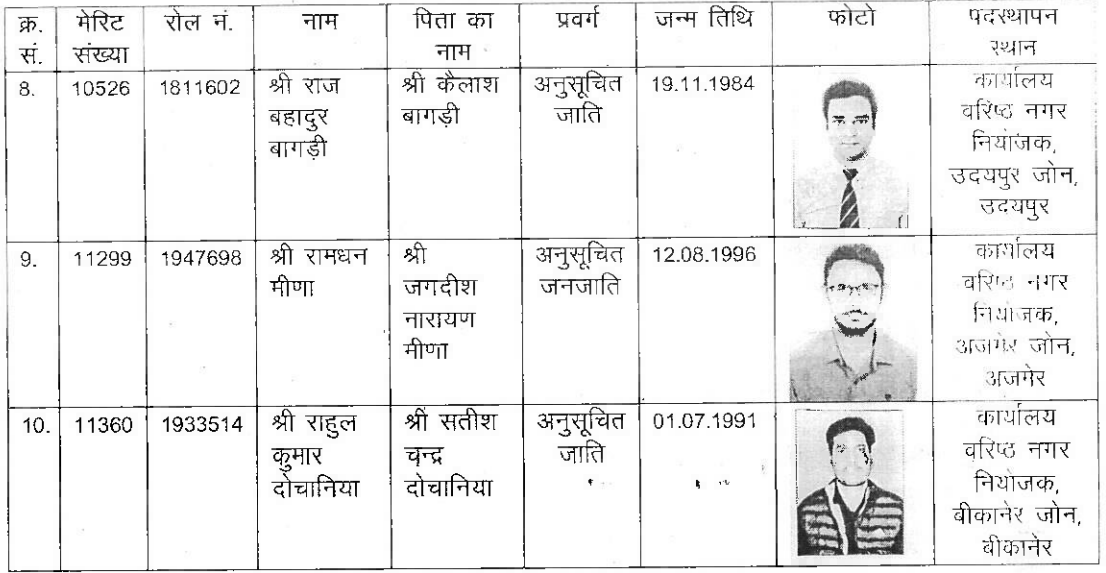 क्र. सं. मेरिट संख्या रोल नं. नाम पिता का नाम प्रवर्ग जन्म तिथि फोटो पदस्थापन स्थान
8. 10526 1811602 श्री राज बहादुर बागड़ी श्री कैलाश बागड़ी अनुसूचित जाति 19.11.1984 कार्यालय वरिष्ठ नगर नियोजक, उदयपुर जोन, उदयपुर
9. 11299 1947698 श्री रामधन मीणा श्री जगदीश नारायण मीणा अनुसूचित जनजाति 12.08.1996 कार्यालय वरिष्ठ नगर नियोजक, अजमेर जोन, अजमेर
10. 11360 1933514 श्री राहुल कुमार दोचानिया श्री सतीश चन्द्र दोचानिया अनुसूचित जाति 01.07.1991 कार्यालय वरिष्ठ नगर नियोजक, बीकानेर जोन, बीकानेर